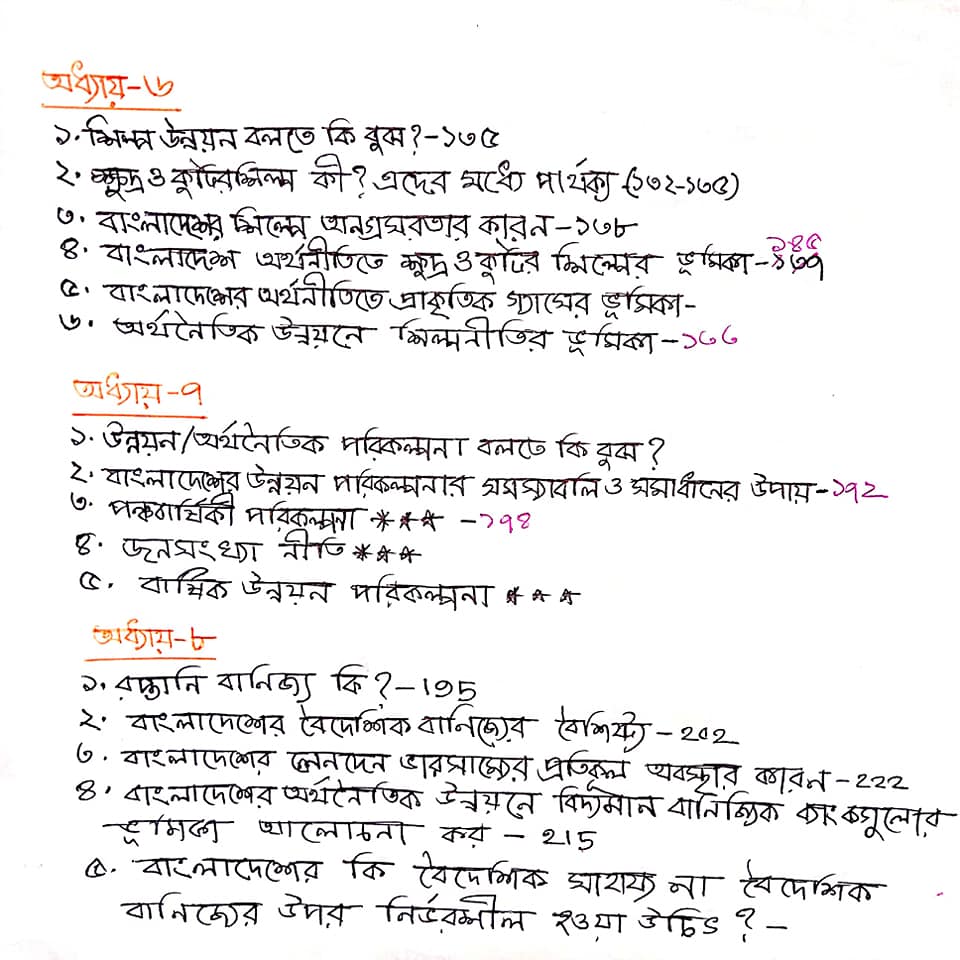 অধ্যায়-৬
১. শিল্প উন্নয়ন বলতে কি বুঝ?-১৩৫
২. ক্ষুদ্র ও কুটিরশিল্প কী? এদের মধ্যে পার্থক্য (১৩২-১৩৫)
৩. বাংলাদেশের শিল্পে অনগ্রসরতার কারন-১৩৮
৪. বাংলাদেশ অর্থনীতিতে ক্ষুদ্র ও কুটির শিল্পের ভূমিকা-১৪৫
৫. বাংলাদেশের অর্থনীতিতে প্রাকৃতিক গ্যাসের ভূমিকা-
৬. অর্থনৈতিক উন্নয়নে শিল্পনীতির ভূমিকা-১৬৬
অধ্যায়-৭
১. উন্নয়ন/অর্থনৈতিক পরিকল্পনা বলতে কি বুঝ?
২. বাংলাদেশের উন্নয়ন পরিকল্পনার সমস্যাবলি ও সমাধানের উপায়-১৭২
৩. পঞ্চবার্ষিকী পরিকল্পনা *** -১৭৪
৪. জনসংখ্যা নীতি ***
৫. বার্ষিক উন্নয়ন পরিকল্পনা ***
অধ্যায়-৮
১. রপ্তানি বানিজ্য কি?-195
২. বাংলাদেশের বৈদেশিক বানিজ্যের বৈশিষ্ট্য-202
৩. বাংলাদেশের লেনদেন ভারসাম্যের প্রতিকূল অবস্থার কারন-222
৪. বাংলাদেশের অর্থনৈতিক উন্নয়নে বিদ্যমান বানিজ্যিক ব্যাংকগুলোর
ভূমিকা আলোচনা কর - 215
৫. বাংলাদেশের কি বৈদেশিক সাহায্য না বৈদেশিক
বানিজ্যের উপর নির্ভরশীল হওয়া উচিৎ?-